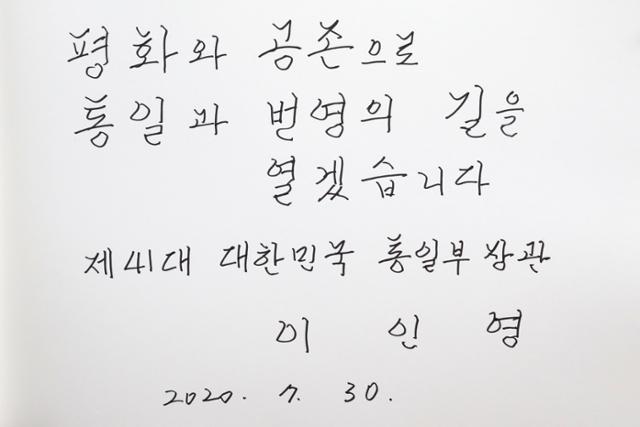 평화와 공존으로
통일과 번영의 길을
열겠습니다
제41대 대한민국 통일부 장관
이 인 영
2020. 7. 30.